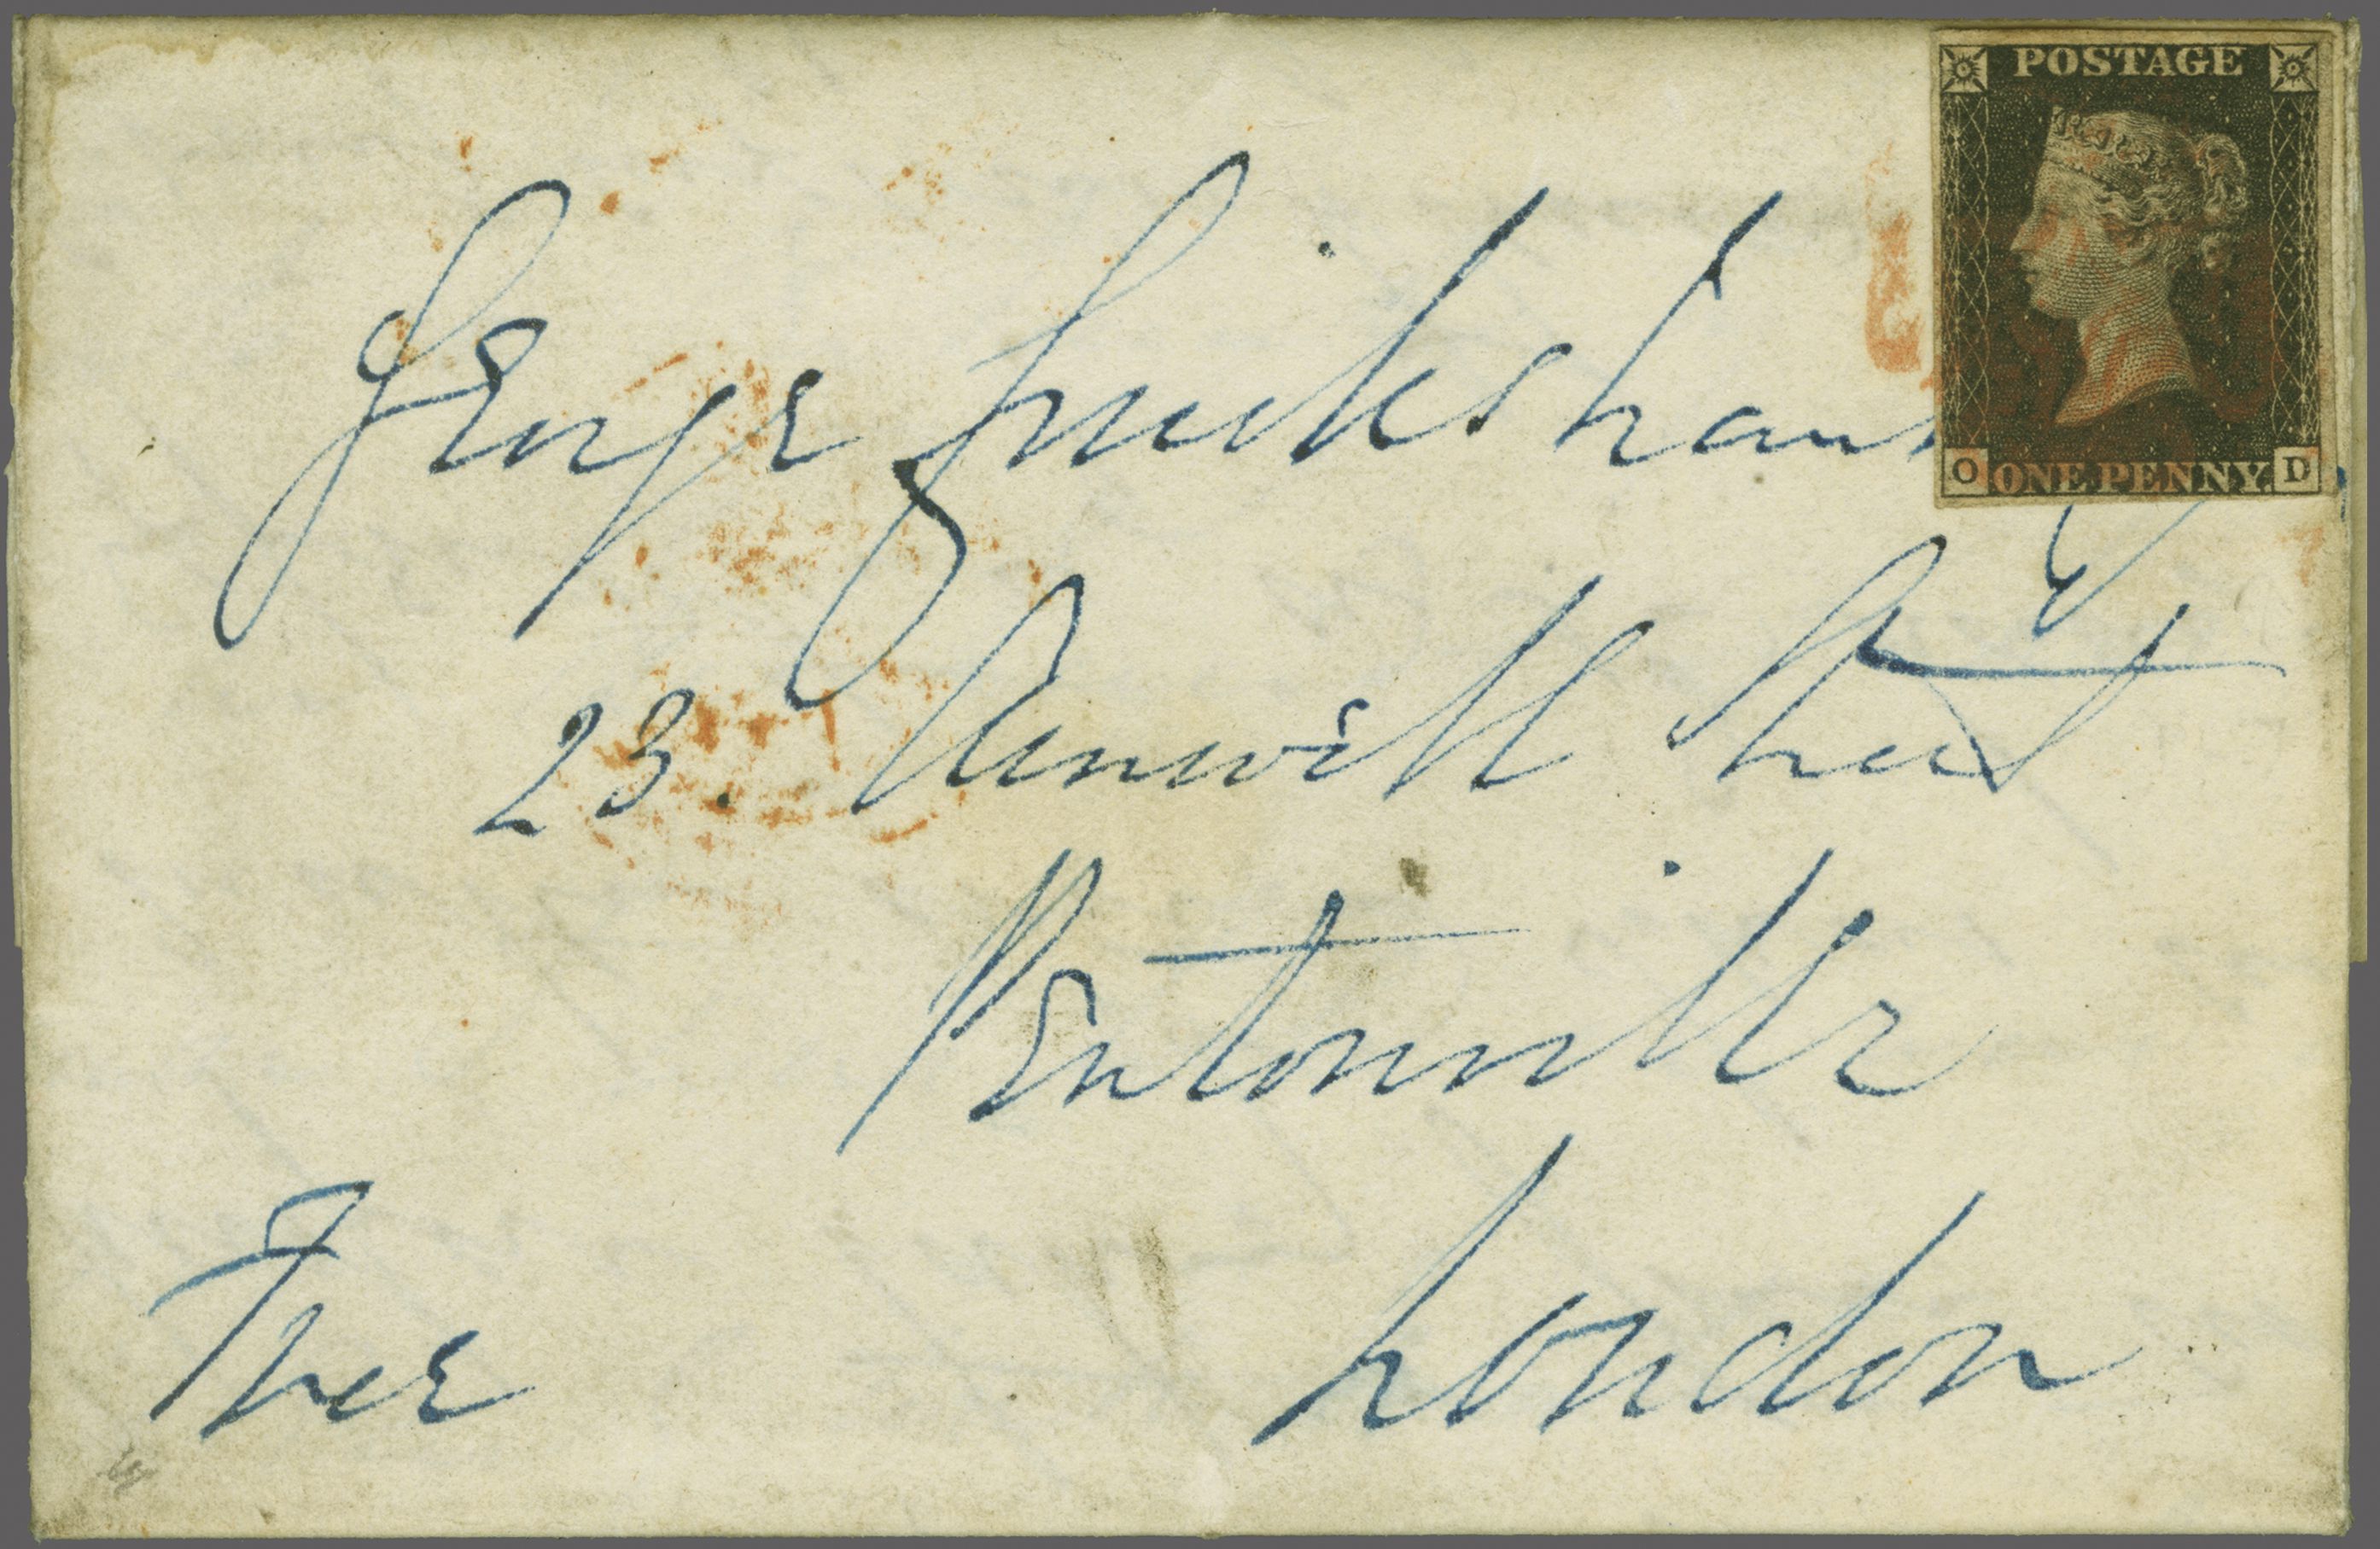 POSTAGE
George Cruikshan
O ONE PENNY. D
23. Amwell Street
Pentonville
Free
London